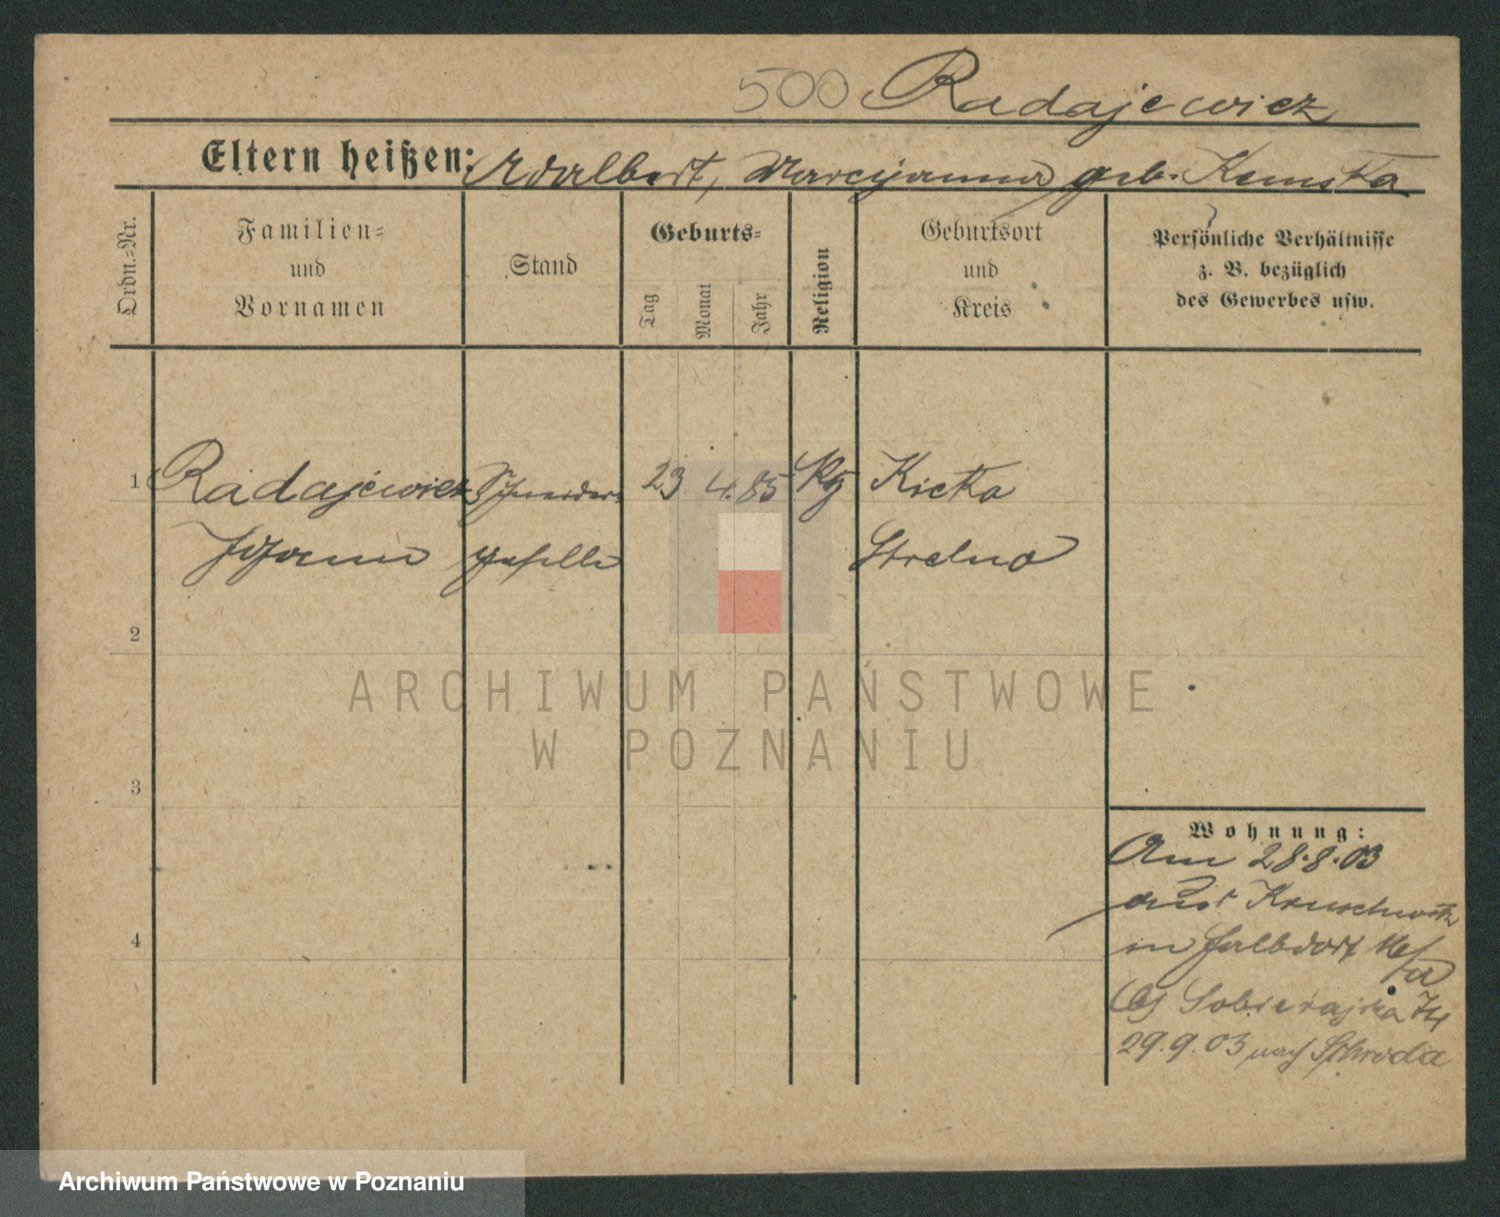 500 Radajewicz
Eltern heißen: Adalbert, Marcijanna geb. Kemska
Ordn.-Nr.
Familien-
und
Vornamen
Stand
Geburts-
Tag
Monat
Jahr
Religion
Geburtsort
und
Kreis
Persönliche Verhältnisse
z. B. bezüglich
des Gewerbes usw.
1 Radajewicz Schneider- 23 4. 85 Kicka
Johann geselle Strelno
2
3
4
Wohnung:
Am 28.8.03
aus Kruschwitz
in Halbdorf
bei 
29.9.03 nach Schroda
ARCHIWUM PAŃSTWOWE
W POZNANIU
Archiwum Państwowe w Poznaniu